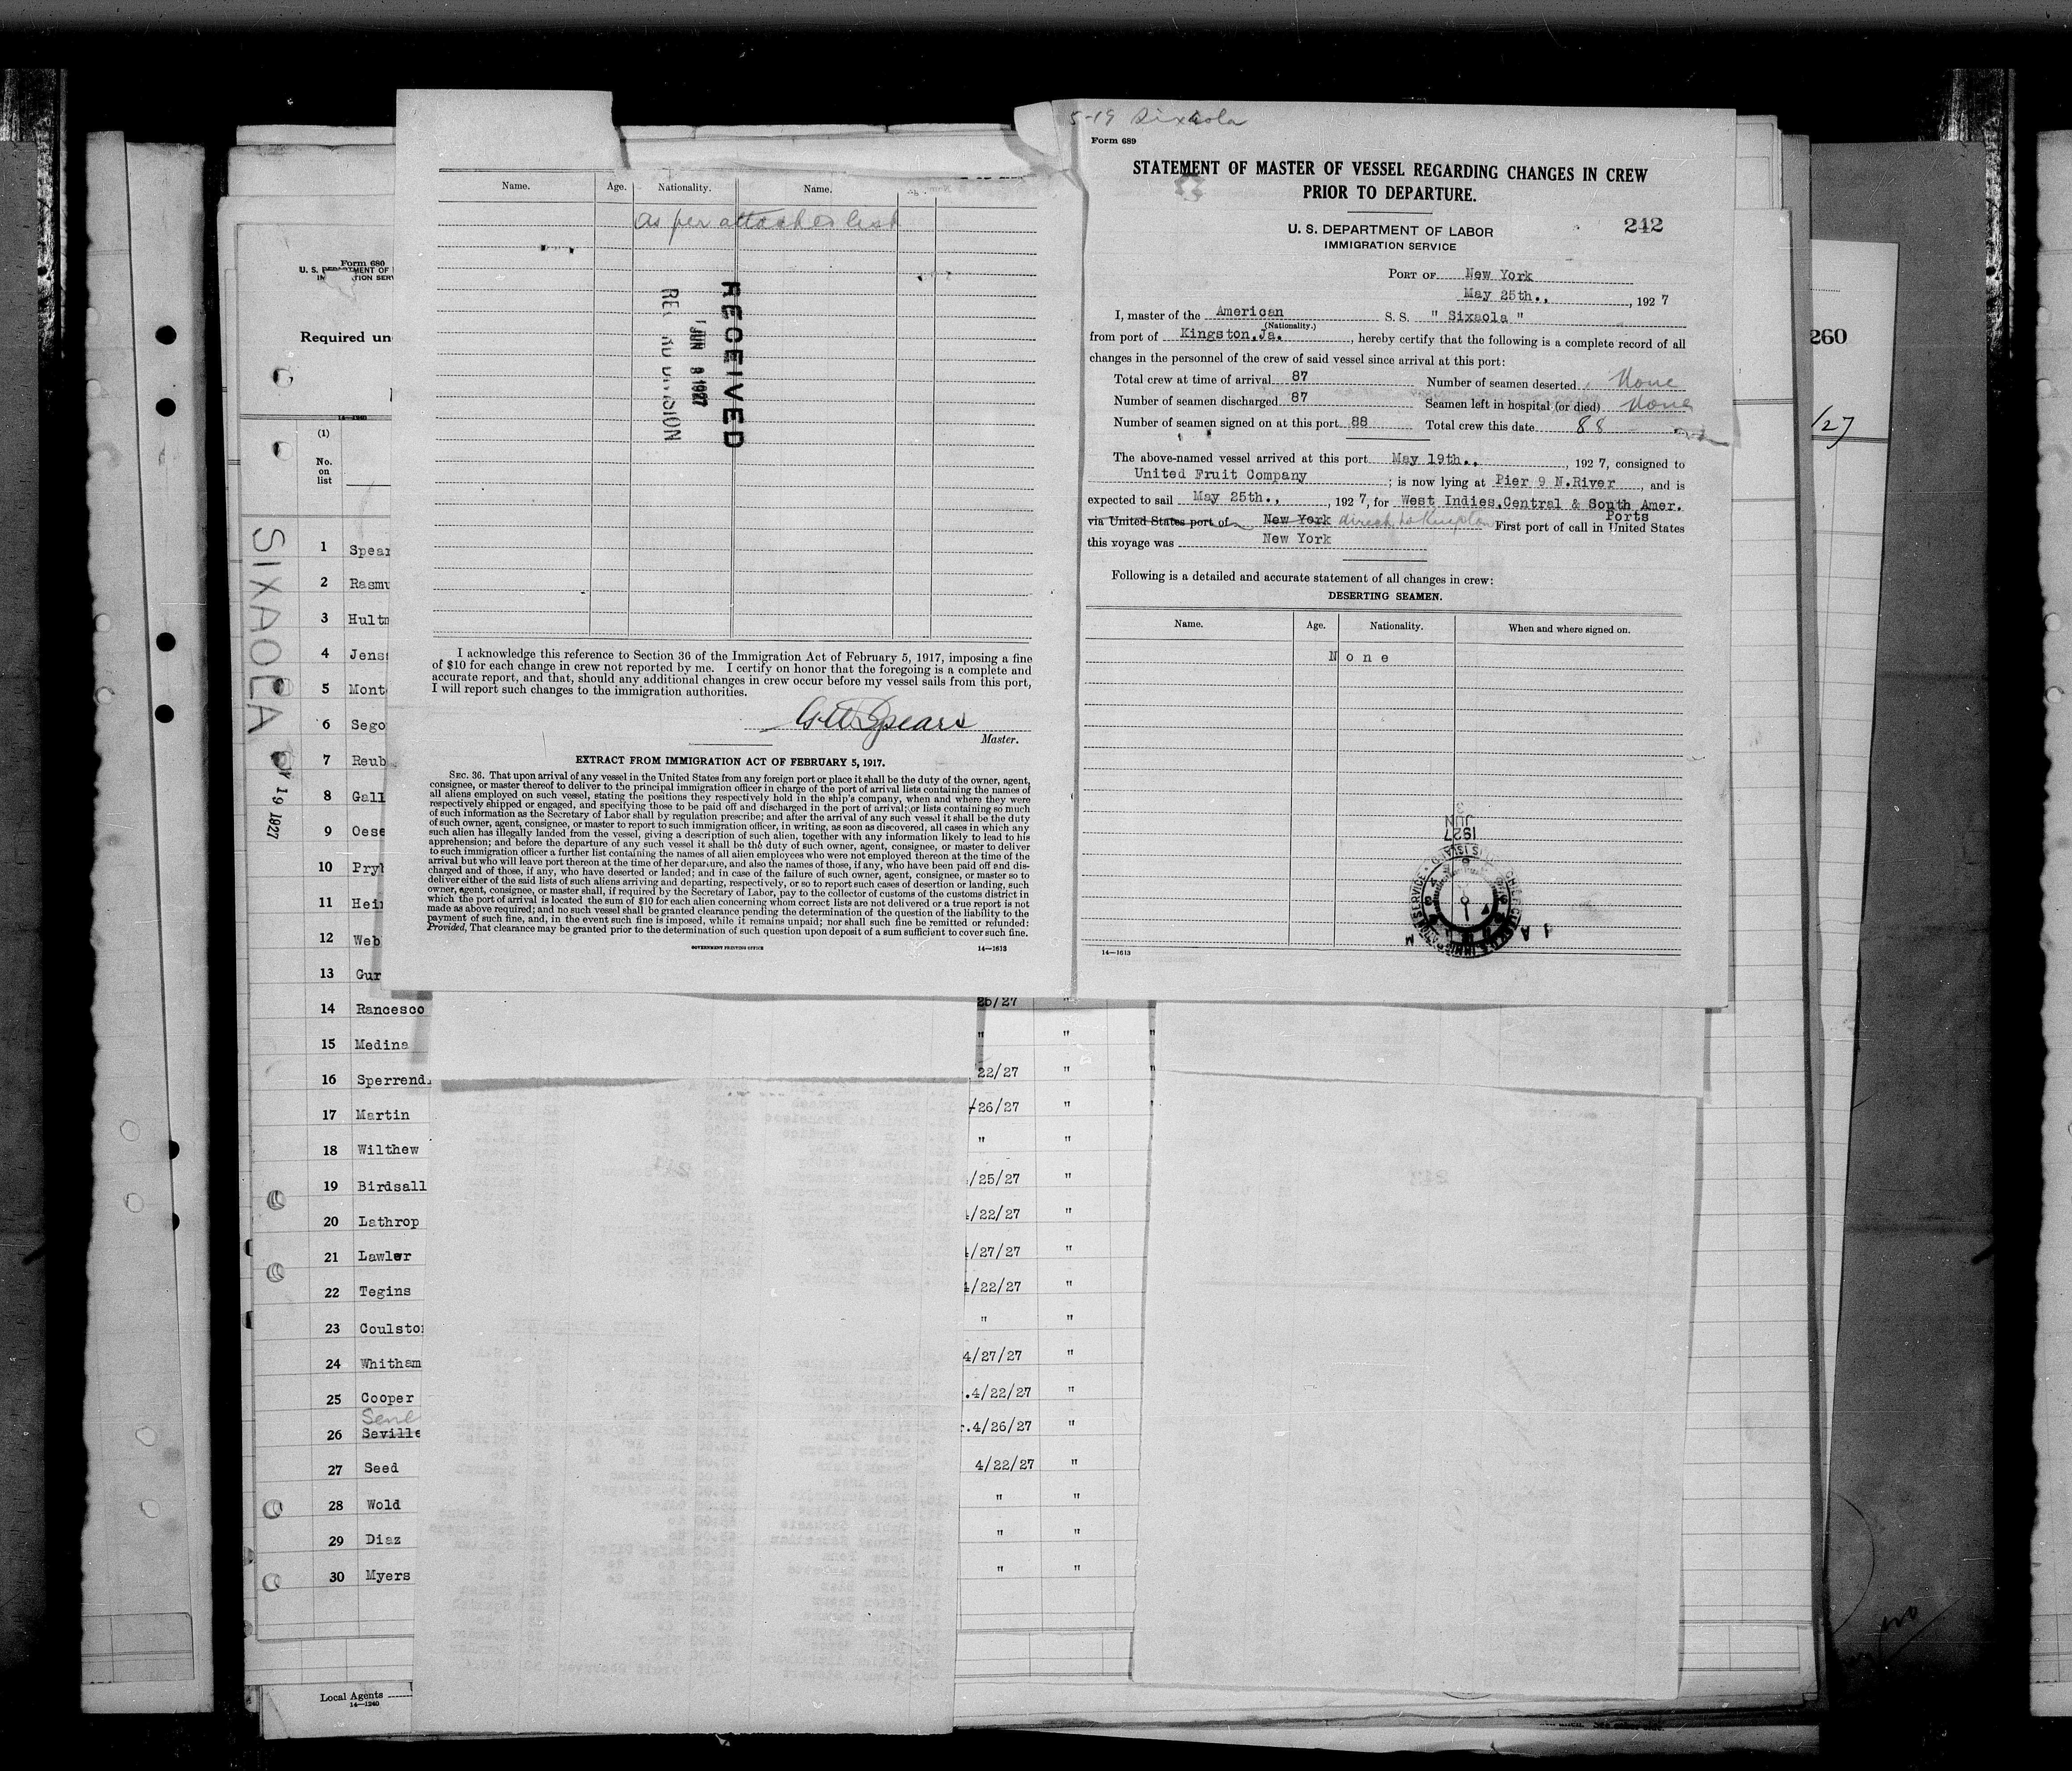 Name. Age. Nationality. Name.
As per attached list
RECEIVED
JUN 8 1927
I acknowledge this reference to Section 36 of the Immigration Act of February 5, 1917, imposing a fine
of $10 for each change in crew not reported by me. I certify on honor that the foregoing is a complete and
accurate report, and that, should any additional changes in crew occur before my vessel sails from this port,
I will report such changes to the immigration authorities.
Spears
Master.
EXTRACT FROM IMMIGRATION ACT OF FEBRUARY 5, 1917.
SEC. 36. That upon arrival of any vessel in the United States from any foreign port or place it shall be the duty of the owner, agent,
consignee, or master thereof to deliver to the principal immigration officer in charge of the port of arrival lists containing the names of
all aliens employed on such vessel, stating the positions they respectively hold in the ship's company, when and where they were
respectively shipped or engaged, and specifying those to be paid off and discharged in the port of arrival; or lists containing so much
of such information as the Secretary of Labor shall by regulation prescribe; and after the arrival of any such vessel it shall be the duty
of such owner, agent, consignee, or master to report to such immigration officer, in writing, as soon as discovered, all cases in which any
such alien has illegally landed from the vessel, giving a description of such alien, together with any information likely to lead to his
apprehension; and before the departure of any such vessel it shall be the duty of such owner, agent, consignee, or master to deliver
to such immigration officer a further list containing the names of all alien employees who were not employed thereon at the time of the
arrival but who will leave port thereon at the time of her departure, and also the names of those, if any, who have been paid off and dis-
charged and of those, if any, who have deserted or landed; and in case of the failure of such owner, agent, consignee, or master so to
deliver either of the said lists of such aliens arriving and departing, respectively, or so to report such cases of desertion or landing, such
owner, agent, consignee, or master shall, if required by the Secretary of Labor, pay to the collector of customs of the customs district in
which the port of arrival is located the sum of $10 for each alien concerning whom correct lists are not delivered or a true report is not
made as above required; and no such vessel shall be granted clearance pending the determination of the question of the liability to the
payment of such fine, and, in the event such fine is imposed, while it remains unpaid; nor shall such fine be remitted or refunded:
Provided, That clearance may be granted prior to the determination of such question upon deposit of a sum sufficient to cover such fine.
GOVERNMENT PRINTING OFFICE 14—1613
5-19 Sixaola
Form 689
STATEMENT OF MASTER OF VESSEL REGARDING CHANGES IN CREW
PRIOR TO DEPARTURE.
U. S. DEPARTMENT OF LABOR
IMMIGRATION SERVICE
242
PORT OF New York
May 25th., , 1927
I, master of the American S. S. " Sixaola "
(Nationality.)
from port of Kingston,Ja. , hereby certify that the following is a complete record of all
changes in the personnel of the crew of said vessel since arrival at this port:
Total crew at time of arrival 87 Number of seamen deserted None
Number of seamen discharged 87 Seamen left in hospital (or died) None
Number of seamen signed on at this port 88 Total crew this date 88
The above-named vessel arrived at this port May 19th., , 1927, consigned to
United Fruit Company ; is now lying at Pier 9 N.River , and is
expected to sail May 25th., , 1927, for West Indies,Central & South Amer.
Ports
via United States port of New York direct to Kingston First port of call in United States
this voyage was New York
Following is a detailed and accurate statement of all changes in crew:
DESERTING SEAMEN.
Name. Age. Nationality. When and where signed on.
None
JUN 1927
14—1613
Form 680
U. S. DEPARTMENT OF
Required un
14—1240
(1)
No.
on
list
SIXAOLA
19 1927
1 Spear
2 Rasmu
3 Hultm
4 Jens
5 Mont
6 Sego
7 Reub
8 Gall
9 Oese
10 Pry
11 Hei
12 Web
13 Gur
14 Rancesco 26/27 "
15 Medina " " "
16 Sperrend 22/27 " "
17 Martin 26/27 "
18 Wilthew " "
19 Birdsall /25/27 "
20 Lathrop /22/27 "
21 Lawler /27/27 "
22 Tegins 4/22/27 "
23 Coulsto " "
24 Whitham 4/27/27 "
25 Cooper .4/22/27 "
26 Seville .4/26/27 "
27 Seed 4/22/27 "
28 Wold " "
29 Diaz " "
30 Myers " "
Local Agents
14—1240
260
/27